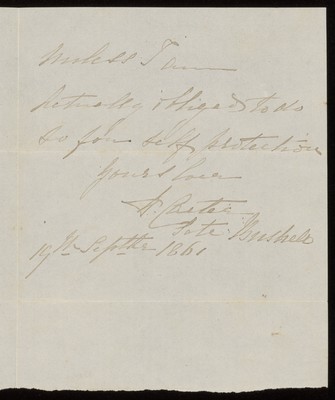 unless I am
actually obliged to do
so for self protection
yours ever
H.
late Bushell
19th Septbr 1861